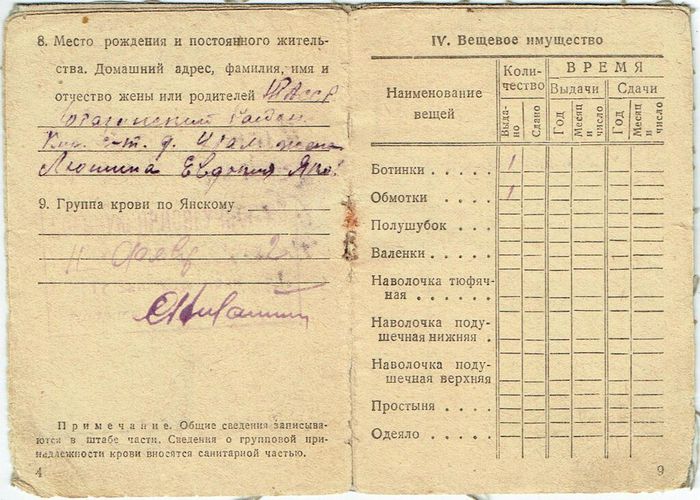 8. Место рождения и постоянного житель-
ства. Домашний адрес, фамилия, имя и
отчество жены или родителей
район
д. жена
Люшина Евдокия Яков
9. Группа крови по Янскому
Примечание. Общие сведения записыва-
ются в штабе части. Сведения о групповой при-
надлежности крови вносятся санитарной частью.
4
IV. Вещевое имущество
Наименование вещей
Коли-
чество
ВРЕМЯ
Выдачи Сдачи
Выда-
но
Сдано
Год
Месяц и число
Год
Месяц и число
Ботинки 1
Обмотки 1
Полушубок
Валенки
Наволочка тюфяч-
ная
Наволочка поду-
шечная нижняя
Наволочка поду-
шечная верхняя
Простыня
Одеяло
9